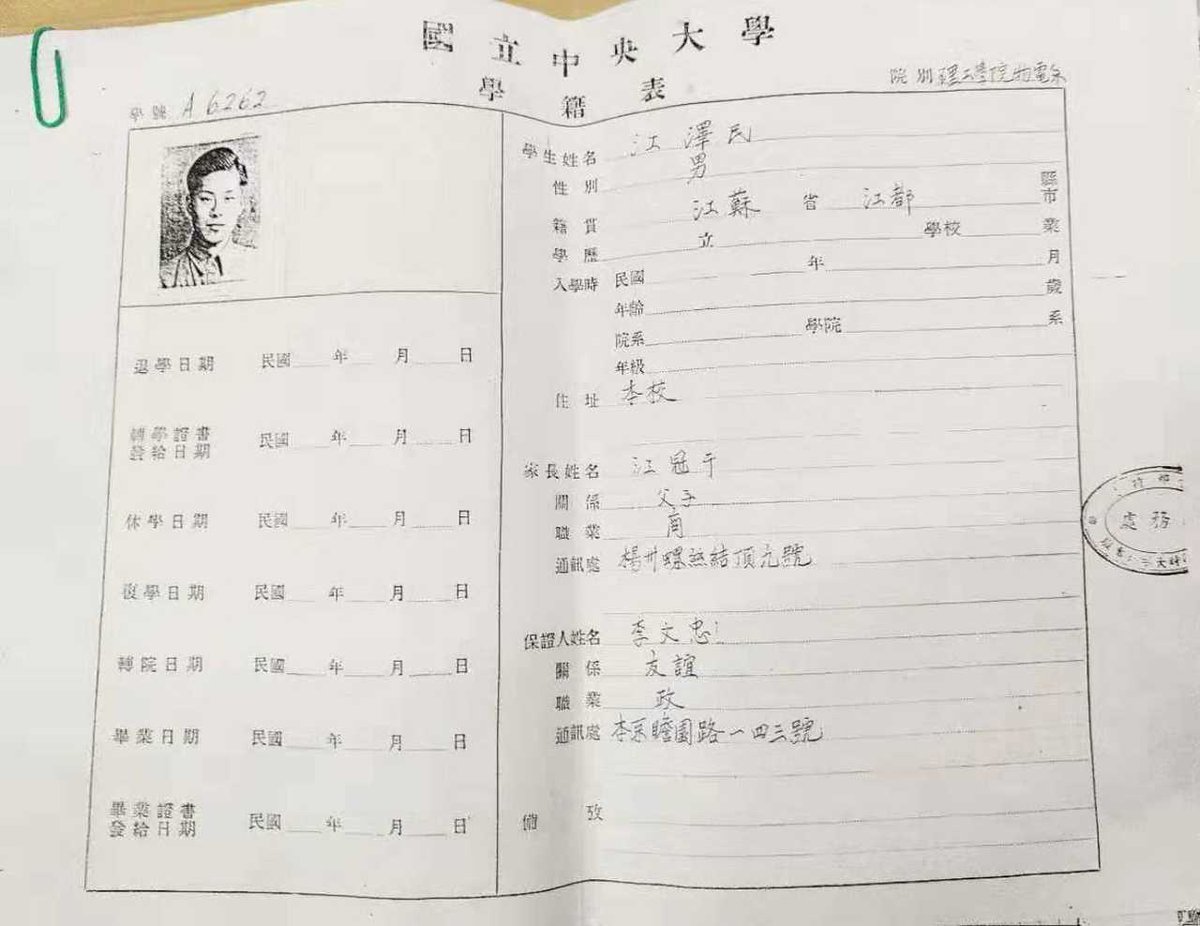 國立中央大學
學籍表
學號 A6262
院別 理工學院物電系
學生姓名 江澤民
性別 男
籍貫 江蘇 省 江都 縣市
學歷 立 學校 業
入學時 民國 年 月
年齡 歲
院系 學院 系
年級
住址 本校
家長姓名 江冠千
關係 父子
職業 商
通訊處 楊州螺絲結頂九號
保證人姓名 李文忠
關係 友誼
職業 政
通訊處 本京瞻園路一四三號
備攷
退學日期 民國 年 月 日
轉學證書發給日期 民國 年 月 日
休學日期 民國 年 月 日
復學日期 民國 年 月 日
轉院日期 民國 年 月 日
畢業日期 民國 年 月 日
畢業證書發給日期 民國 年 月 日
處務